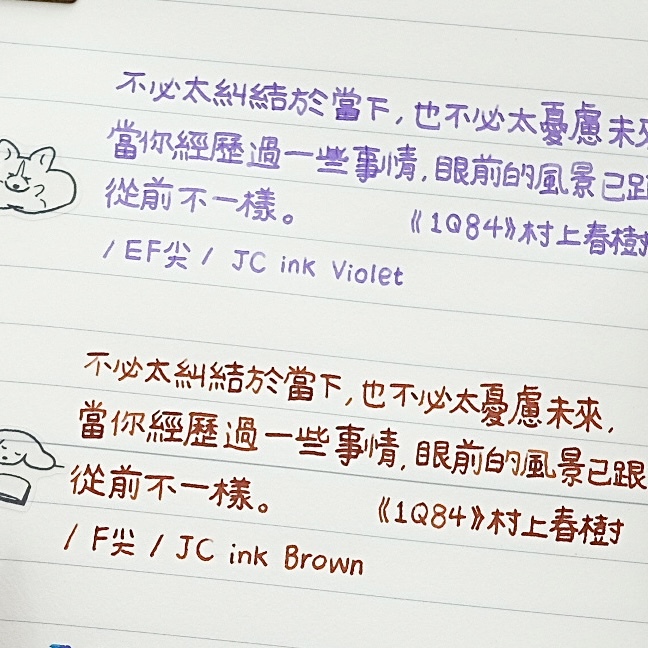 不必太糾結於當下,也不必太憂慮未來
當你經歷過一些事情,眼前的風景已跟
從前不一樣。 《1Q84》村上春樹
/ EF尖 / JC ink Violet
不必太糾結於當下,也不必太憂慮未來,
當你經歷過一些事情,眼前的風景已跟
從前不一樣。 《1Q84》村上春樹
/ F尖 / JC ink Brown